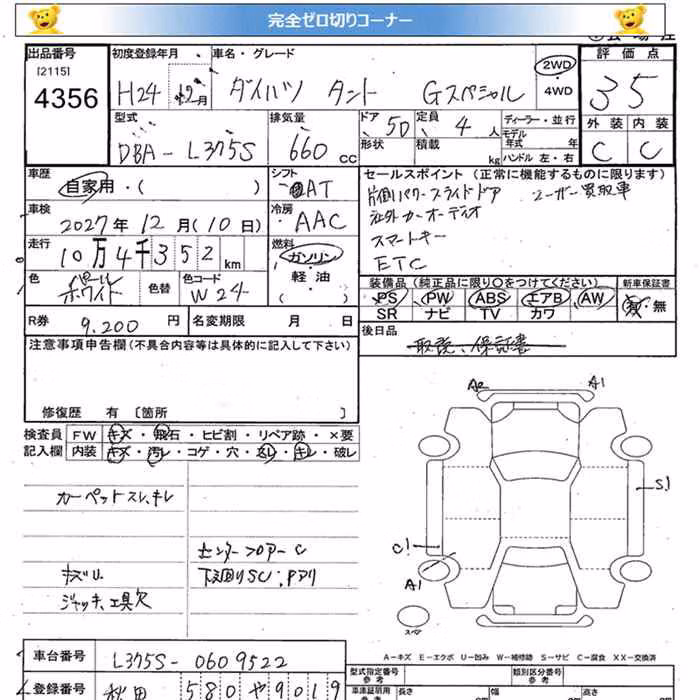 完全ゼロ切りコーナー
出品番号 初度登録年月 車名・グレード 評価点
[2115]
4356 H24 12月 ダイハツ タント Gスペシャル 2WD ・ 4WD 35
型式 排気量 ドア 5D 定員 4人 ディーラー・並行 外装 内装
モデル
DBA-L375S 660cc 形状 積載 kg 年式 年 C C
ハンドル 左・右
車歴 シフト セールスポイント (正常に機能するものに限ります)
自家用・( ) AT 片側パワースライドドア ユーザー買取車
車検 冷房 社外カーオーディオ
2027年12月(10日) AAC スマートキー
走行 燃料 ETC
10万4千352km ガソリン・
軽油・
( )
色 パールホワイト 色替 色コード W24 装備品 (純正品に限り○をつけてください) 新車保証書
PS PW ABS エアB AW 有・無
SR ナビ TV カワ
R券 9,200円 名変期限 月 日 後日品
取説、保証書
注意事項申告欄 (不具合内容等は具体的に記入して下さい)
修復歴 有 〔箇所 〕
A2 A1
検査員 FW キズ・飛石・ヒビ割・リペア跡・×要
記入欄 内装 キズ・汚レ・コゲ・穴・スレ・キレ・破レ
カーペットスレ、キレ
S1
センターフロアーC C1
キズU 下廻りSC、Pアリ
A1
ジャッキ、工具欠
スペア
A-キズ E-エクボ U-凹み W-補修跡 S-サビ C-腐食 XX-交換済
車台番号 L375S-0609522
型式指定番号 類別区分番号
登録番号 秋田 580 や 9019
車庫証明用参考 長さ 幅 高さ 参考